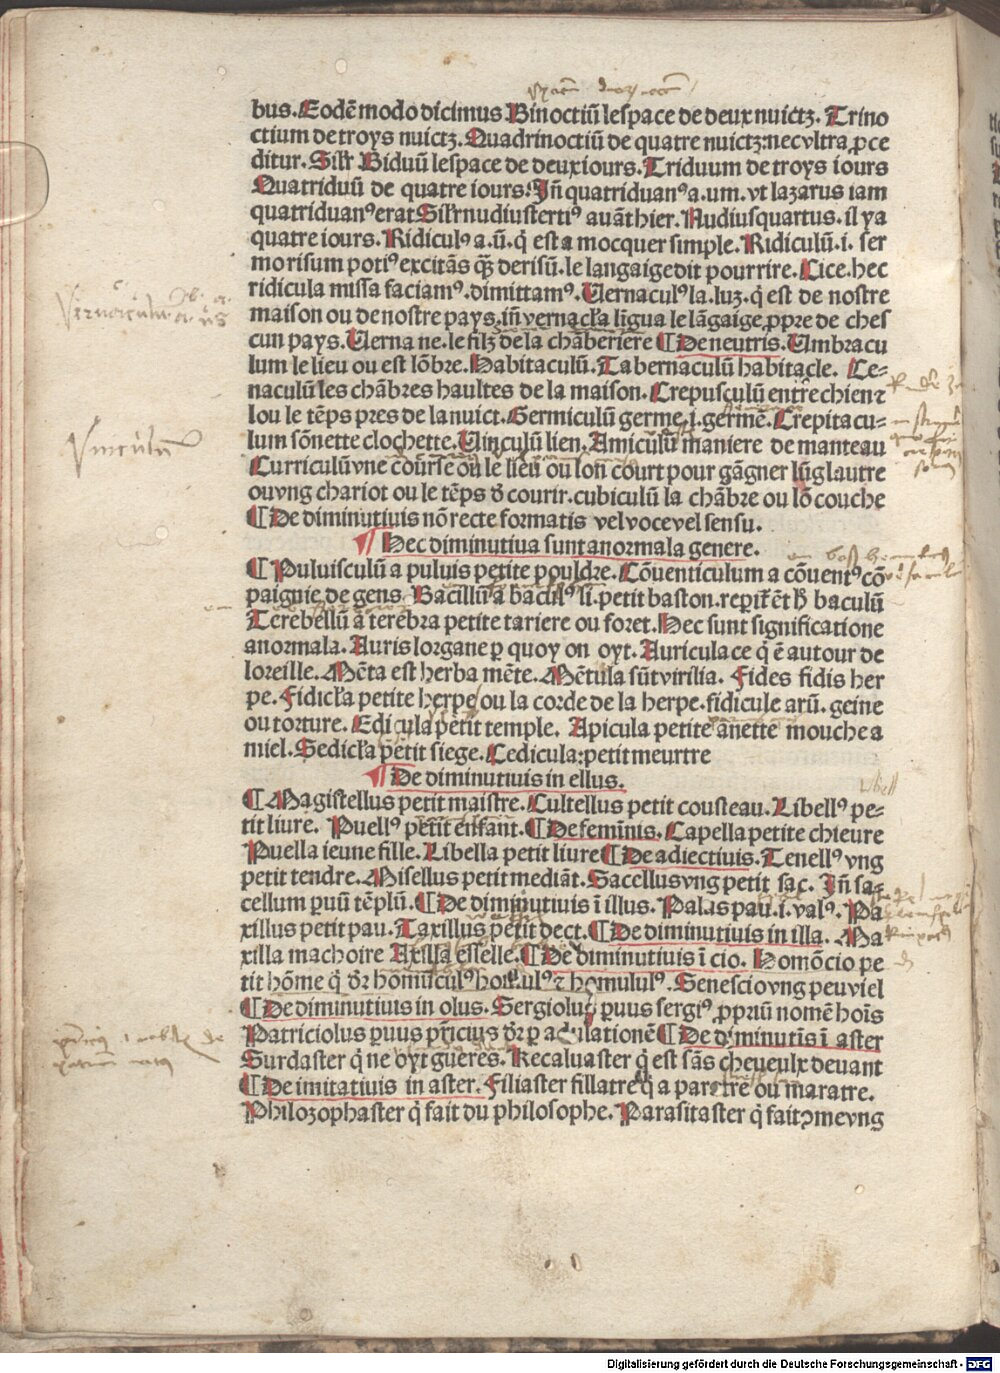 bus. Eodẽ modo dicimus Binoctiũ lespace de deux nuictz. Trino
ctium de troys nuictz. Quadrinoctiũ de quatre nuictz: nec vltra ꝓce
ditur. Silr̃ Biduũ lespace de deux iours. Triduum de troys iours
Quatriduũ de quatre iours. Iñ quatriduanꝰ a. um. vt lazarus iam
quatriduanꝰ erat Silr̃ nudiustertiꝰ auãt hier. Nudiusquartus. il ya
quatre iours. Ridiculꝰ a. ũ. q̇ est a mocquer simple. Ridiculũ. i. ser
mo risum potiꝰ excitãs q̃ʒ derisũ. le langaige dit pourrire. Lice. hec
ridicula missa faciamꝰ. dimittamꝰ. Uernaculꝰ la. luz. q̇ est de nostre
maison ou de nostre pays. iñ vernacl̃a lĩgua le lãgaige ꝓpre de ches
cun pays. Uerna ne. le filz de la chãberiere ¶ De neutris. Umbracu
lum le lieu ou est lõbre. Habitaculũ. Tabernaculũ habitacle. Ce-
naculũ les chãbres haultes de la maison. Crepusculũ entre chien ⁊
lou le tẽps pres de la nuict. Germiculũ germe. i. germẽ. Crepitacu-
lum sõnette clochette. Uinculũ lien. Amiculũ maniere de manteau
Curriculũ vne course ou le lieu ou lon court pour gãgner lũg lautre
ou vng chariot ou le tẽps d̓ courir. cubiculũ la chãbre ou lõ couche
¶ De diminutiuis nõ recte formatis vel voce vel sensu.
¶ Hec diminutiua sunt anormala genere.
¶ Puluisculũ a puluis petite pouldre. Cõuenticulum a cõuentꝰ cõ
paignie de gens. Bacillũ a baculꝰ li. petit baston. reperit̃ et̃ h̓ baculũ
Terebellũ a terebra petite tariere ou foret. Hec sunt significatione
anormala. Auris lorgane ꝑ quoy on oyt. Auricula ce q̇ ẽ autour de
loreille. Mẽta est herba mẽte. Mẽtula sũt virilia. Fides fidis her
pe. Fidicl̃a petite herpe ou la corde de la herpe. fidicule arũ. geine
ou torture. Edicula petit temple. Apicula petite anette mouche a
miel. Sedicl̃a petit siege. Cedicula: petit meurtre
¶ De diminutiuis in ellus.
¶ Magistellus petit maistre. Cultellus petit cousteau. Libellꝰ pe-
tit liure. Puellꝰ petit enfant. ¶ De femininis. Capella petite chieure
Puella ieune fille. Libella petit liure ¶ De adiectiuis. Tenellꝰ vng
petit tendre. Misellus petit mediãt. Sacellus vng petit sac. Iñ sa-
cellum ꝑuũ tẽplũ. ¶ De diminutiuis ĩ illus. Palas pau. i. valꝰ. Pa
xillus petit pau. Taxillus petit dect. ¶ De diminutiuis in illa. Ma
xilla machoire Axilla esselle. ¶ De diminutiuis ĩ cio. Homõcio pe
tit hõme q̇ dr̃ homũculꝰ homulꝰ ⁊ homululꝰ. Senescio vng peu viel
¶ De diminutiuis in olus. Sergiolus ꝑuus sergiꝰ ꝓpriũ nomẽ hoĩs
Patriciolus ꝑuus pr̃icius dr̃ ꝑ adulationẽ ¶ De diminutis ĩ aster
Surdaster q̇ ne oyt gueres. Recaluaster q̇ est sãs cheueulx deuant
¶ De imitatiuis in aster. Filiaster fillatre q̇ a parrtre ou maratre.
Philozophaster q̇ fait du philosophe. Parasitaster q̇ fait ꝯme vng
Vinculũ
Digitalisierung gefördert durch die Deutsche Forschungsgemeinschaft - DFG